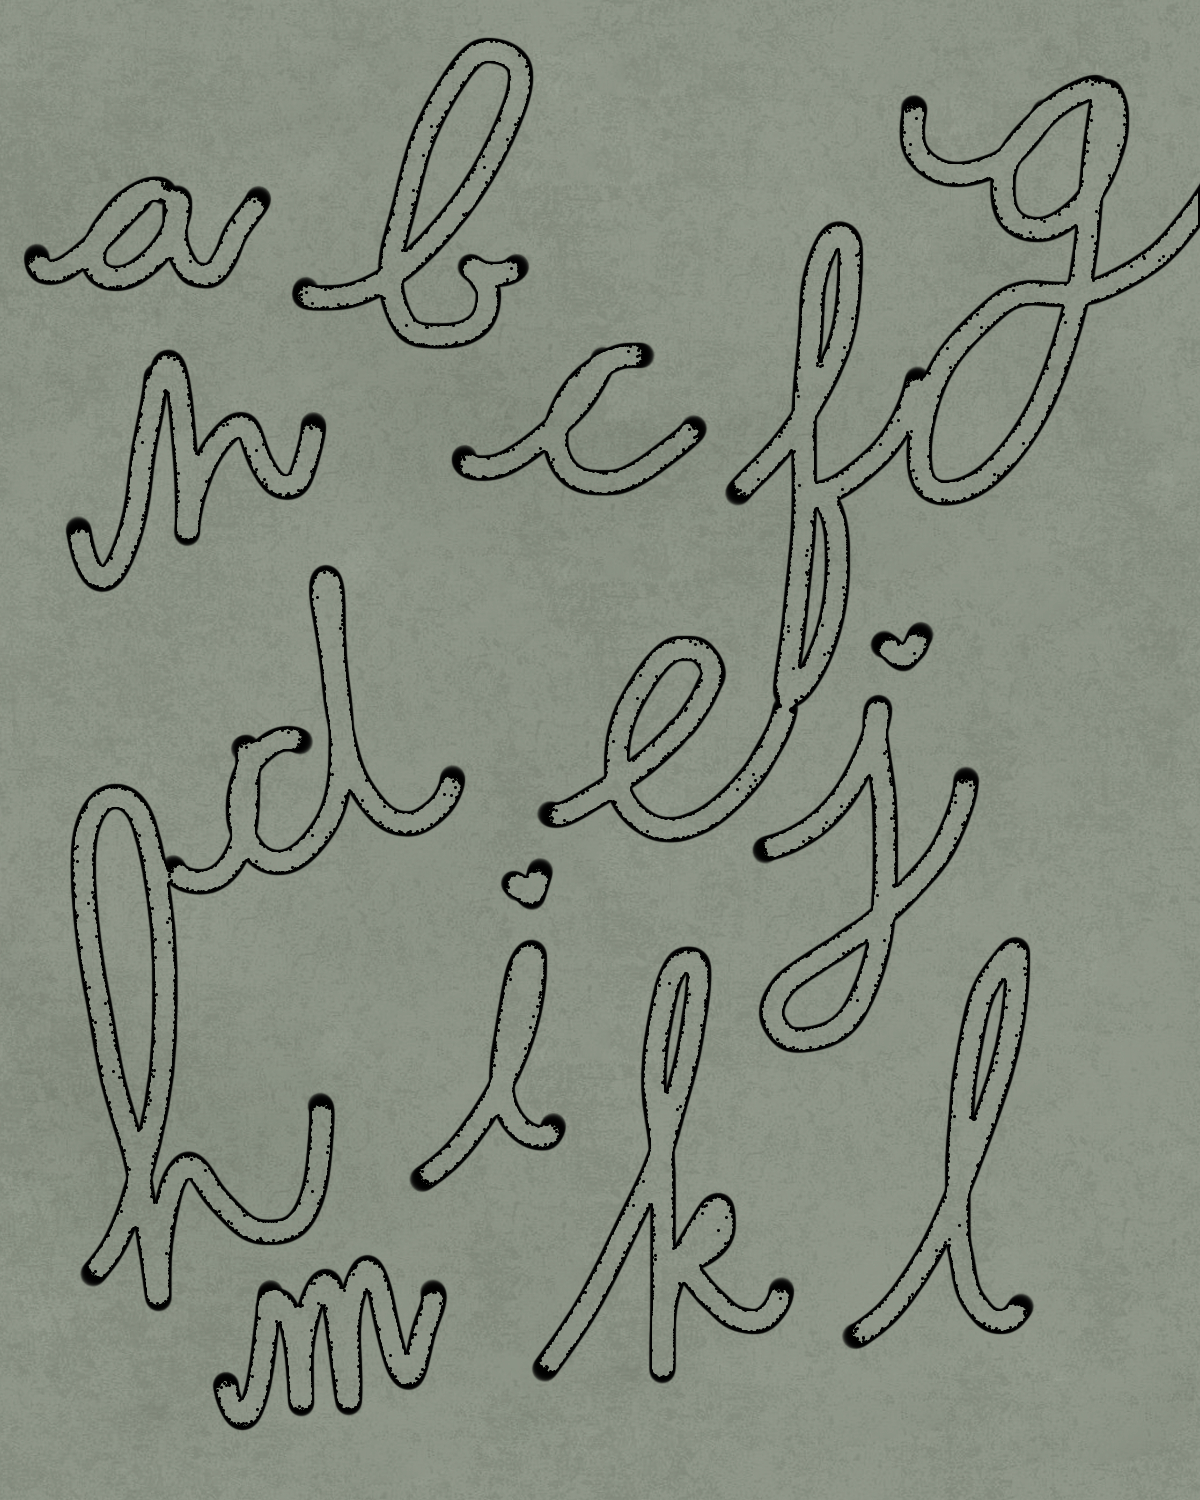 a b g
n c f
d e j
h i k l
m